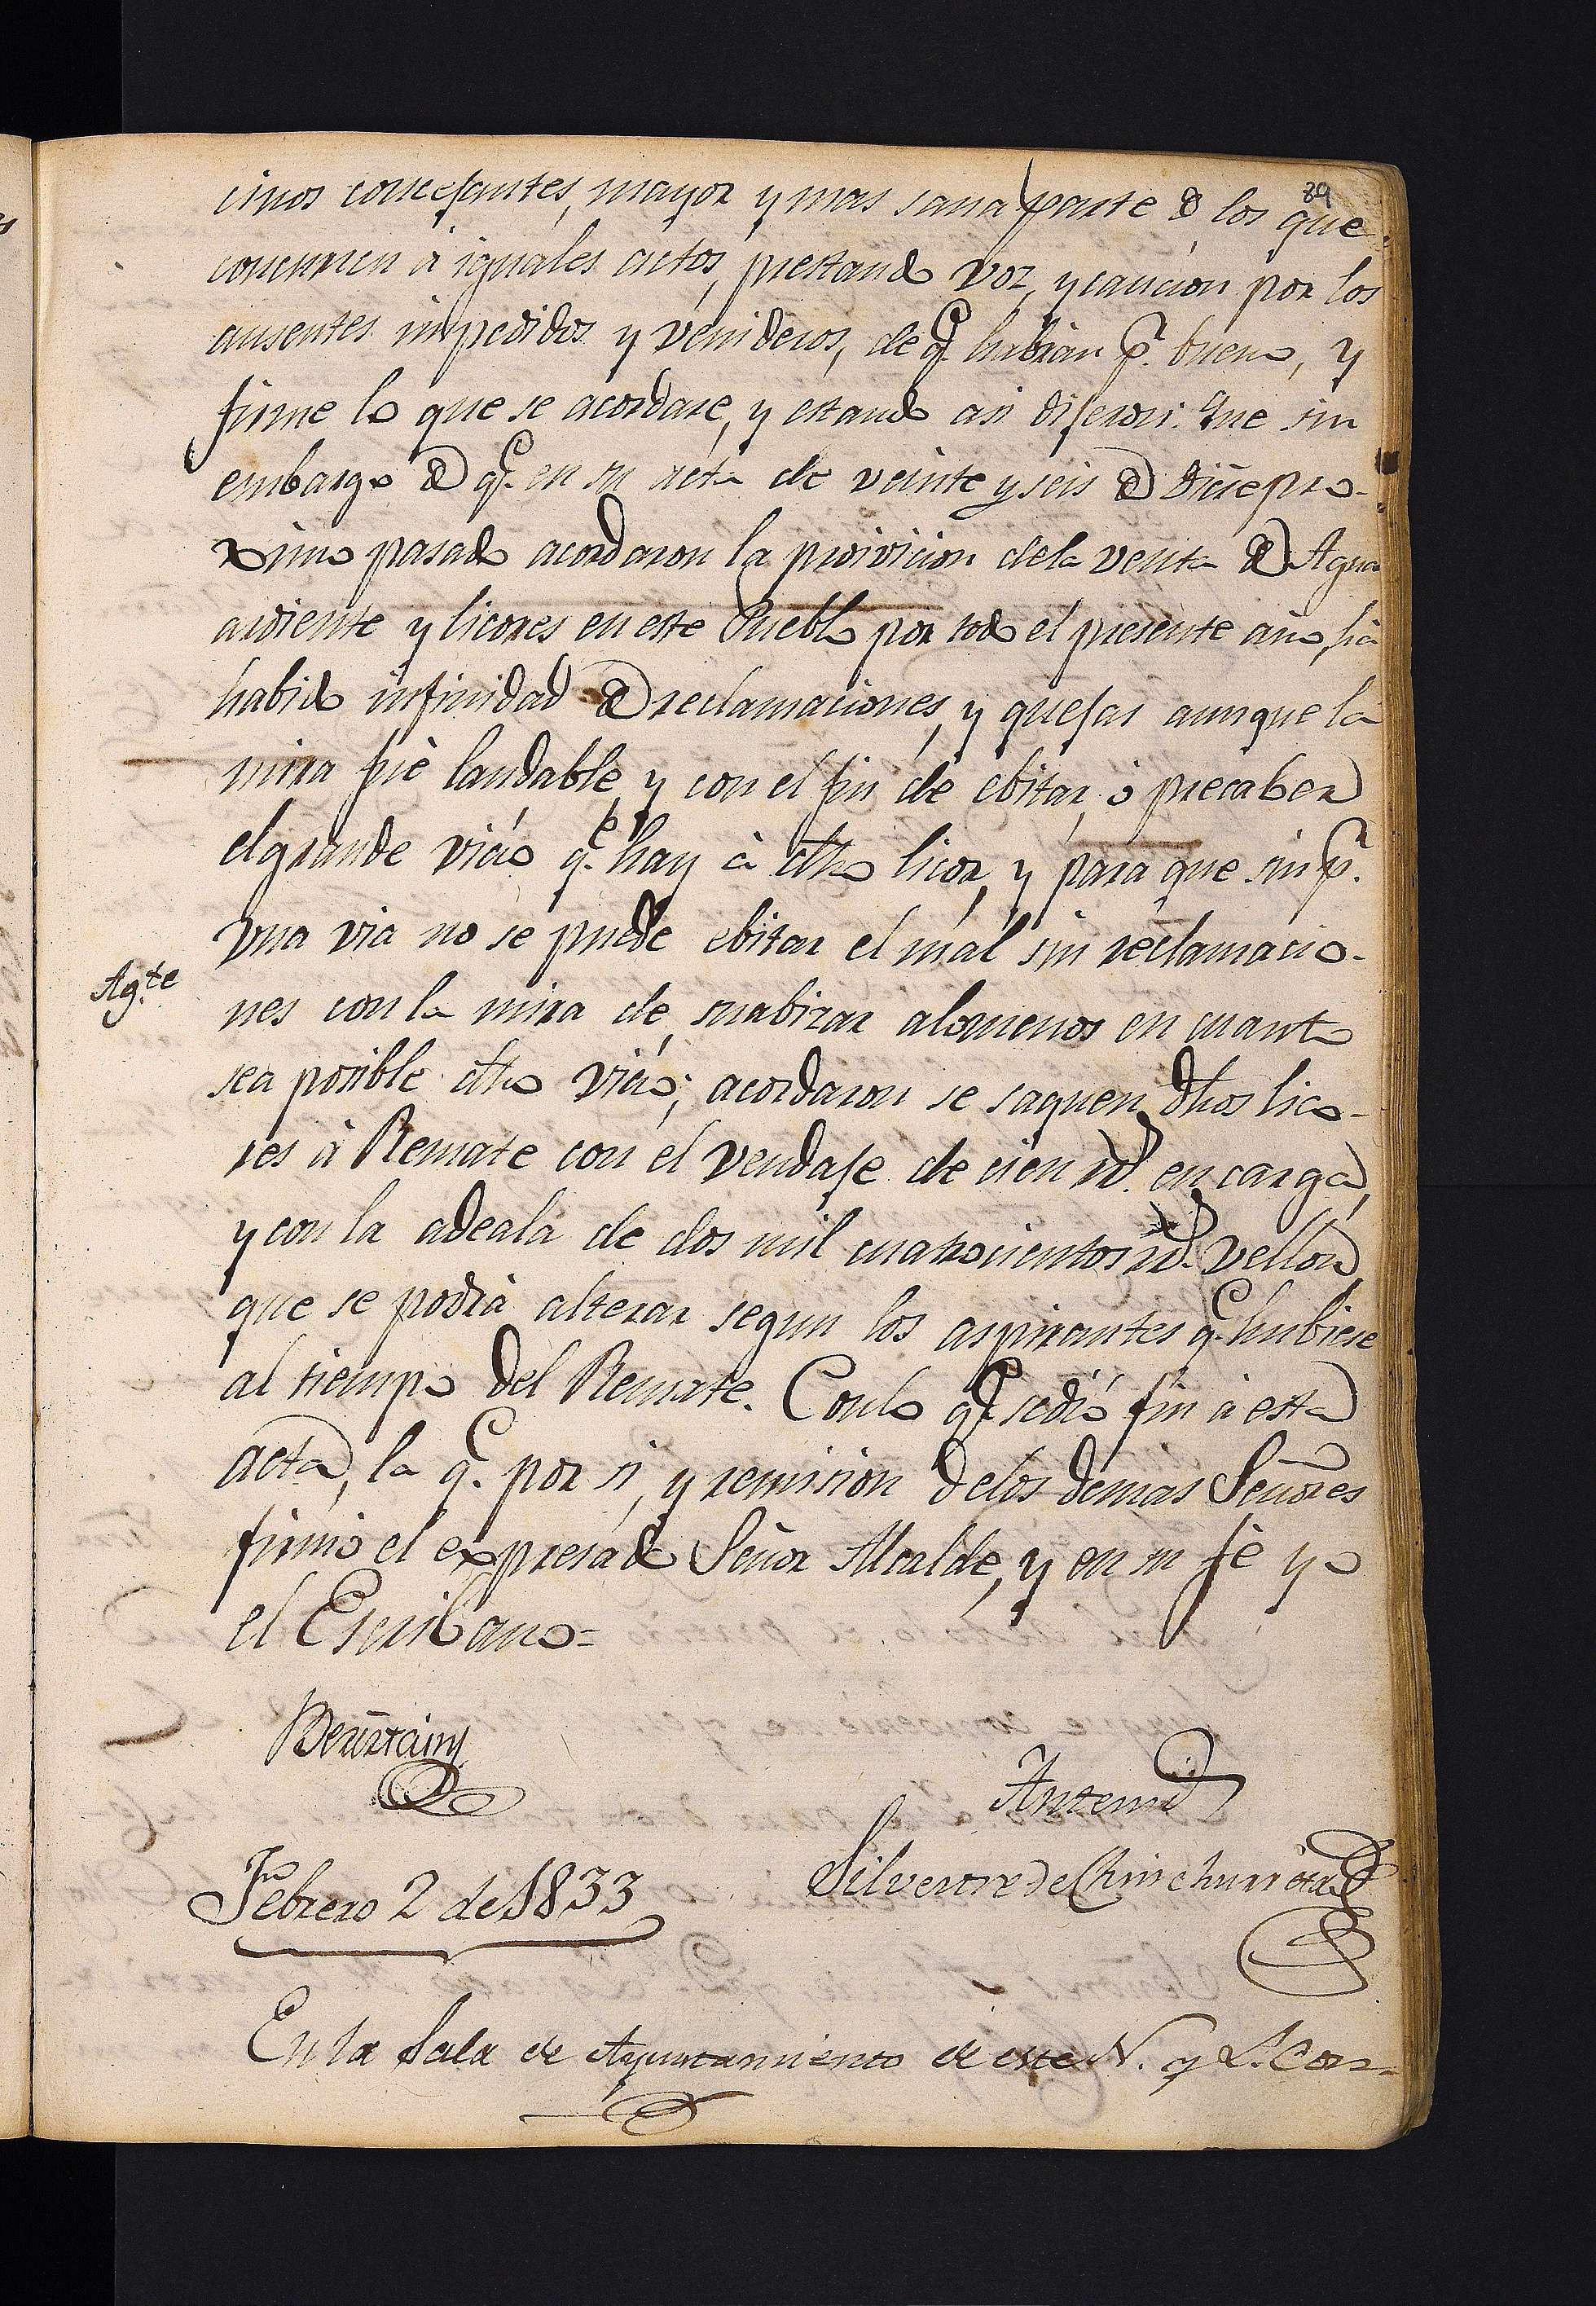 89
cinos concejantes, mayor y mas sana parte de los que
concurren à iguales actos, prestando voz, y caucion por los
ausentes impedidos y venideros, de q.e habràn p.r bueno, y
firme lo que se acordare, y estando asi dijeron: Que sin
embargo de q.e en su acta de veinte y seis de Dice pro-
ximo pasado acordaron la proivicion dela venta de Agua
ardiente y licores en este Pueblo por todo el presente año, hà
habido infinidad de reclamaciones, y quejas aunque la
mira fuè laudable, y con el fin de ebitar, ò precaber
el grande vicio q.e hay à dho licor, y para que sin p.r
una via no se puede ebitar el mal sin reclamacio-
Ag.te
nes con la mira de suabizar alomenos en cuanto
sea posible dho vicio; acordaron se saquen dhos lico-
res à Remate con el vendaje de cien r.s en carga,
y con la adeala de dos mil cuatrocientos r.s vellon
que se podrà alterar segun los aspirantes q.e hubiese
al tiempo del Remate. Conlo q.e sediò fin à esta
acta, la q.e por si, y remision delos demas Señores
firmò el expresado Señor Alcalde, y en su fè yo
el Escribano=
Antemi
Silvestre de Chinchurreta
Febrero 2 de 1833
En la Sala de Ayuntamiento de este N. y L. Con-